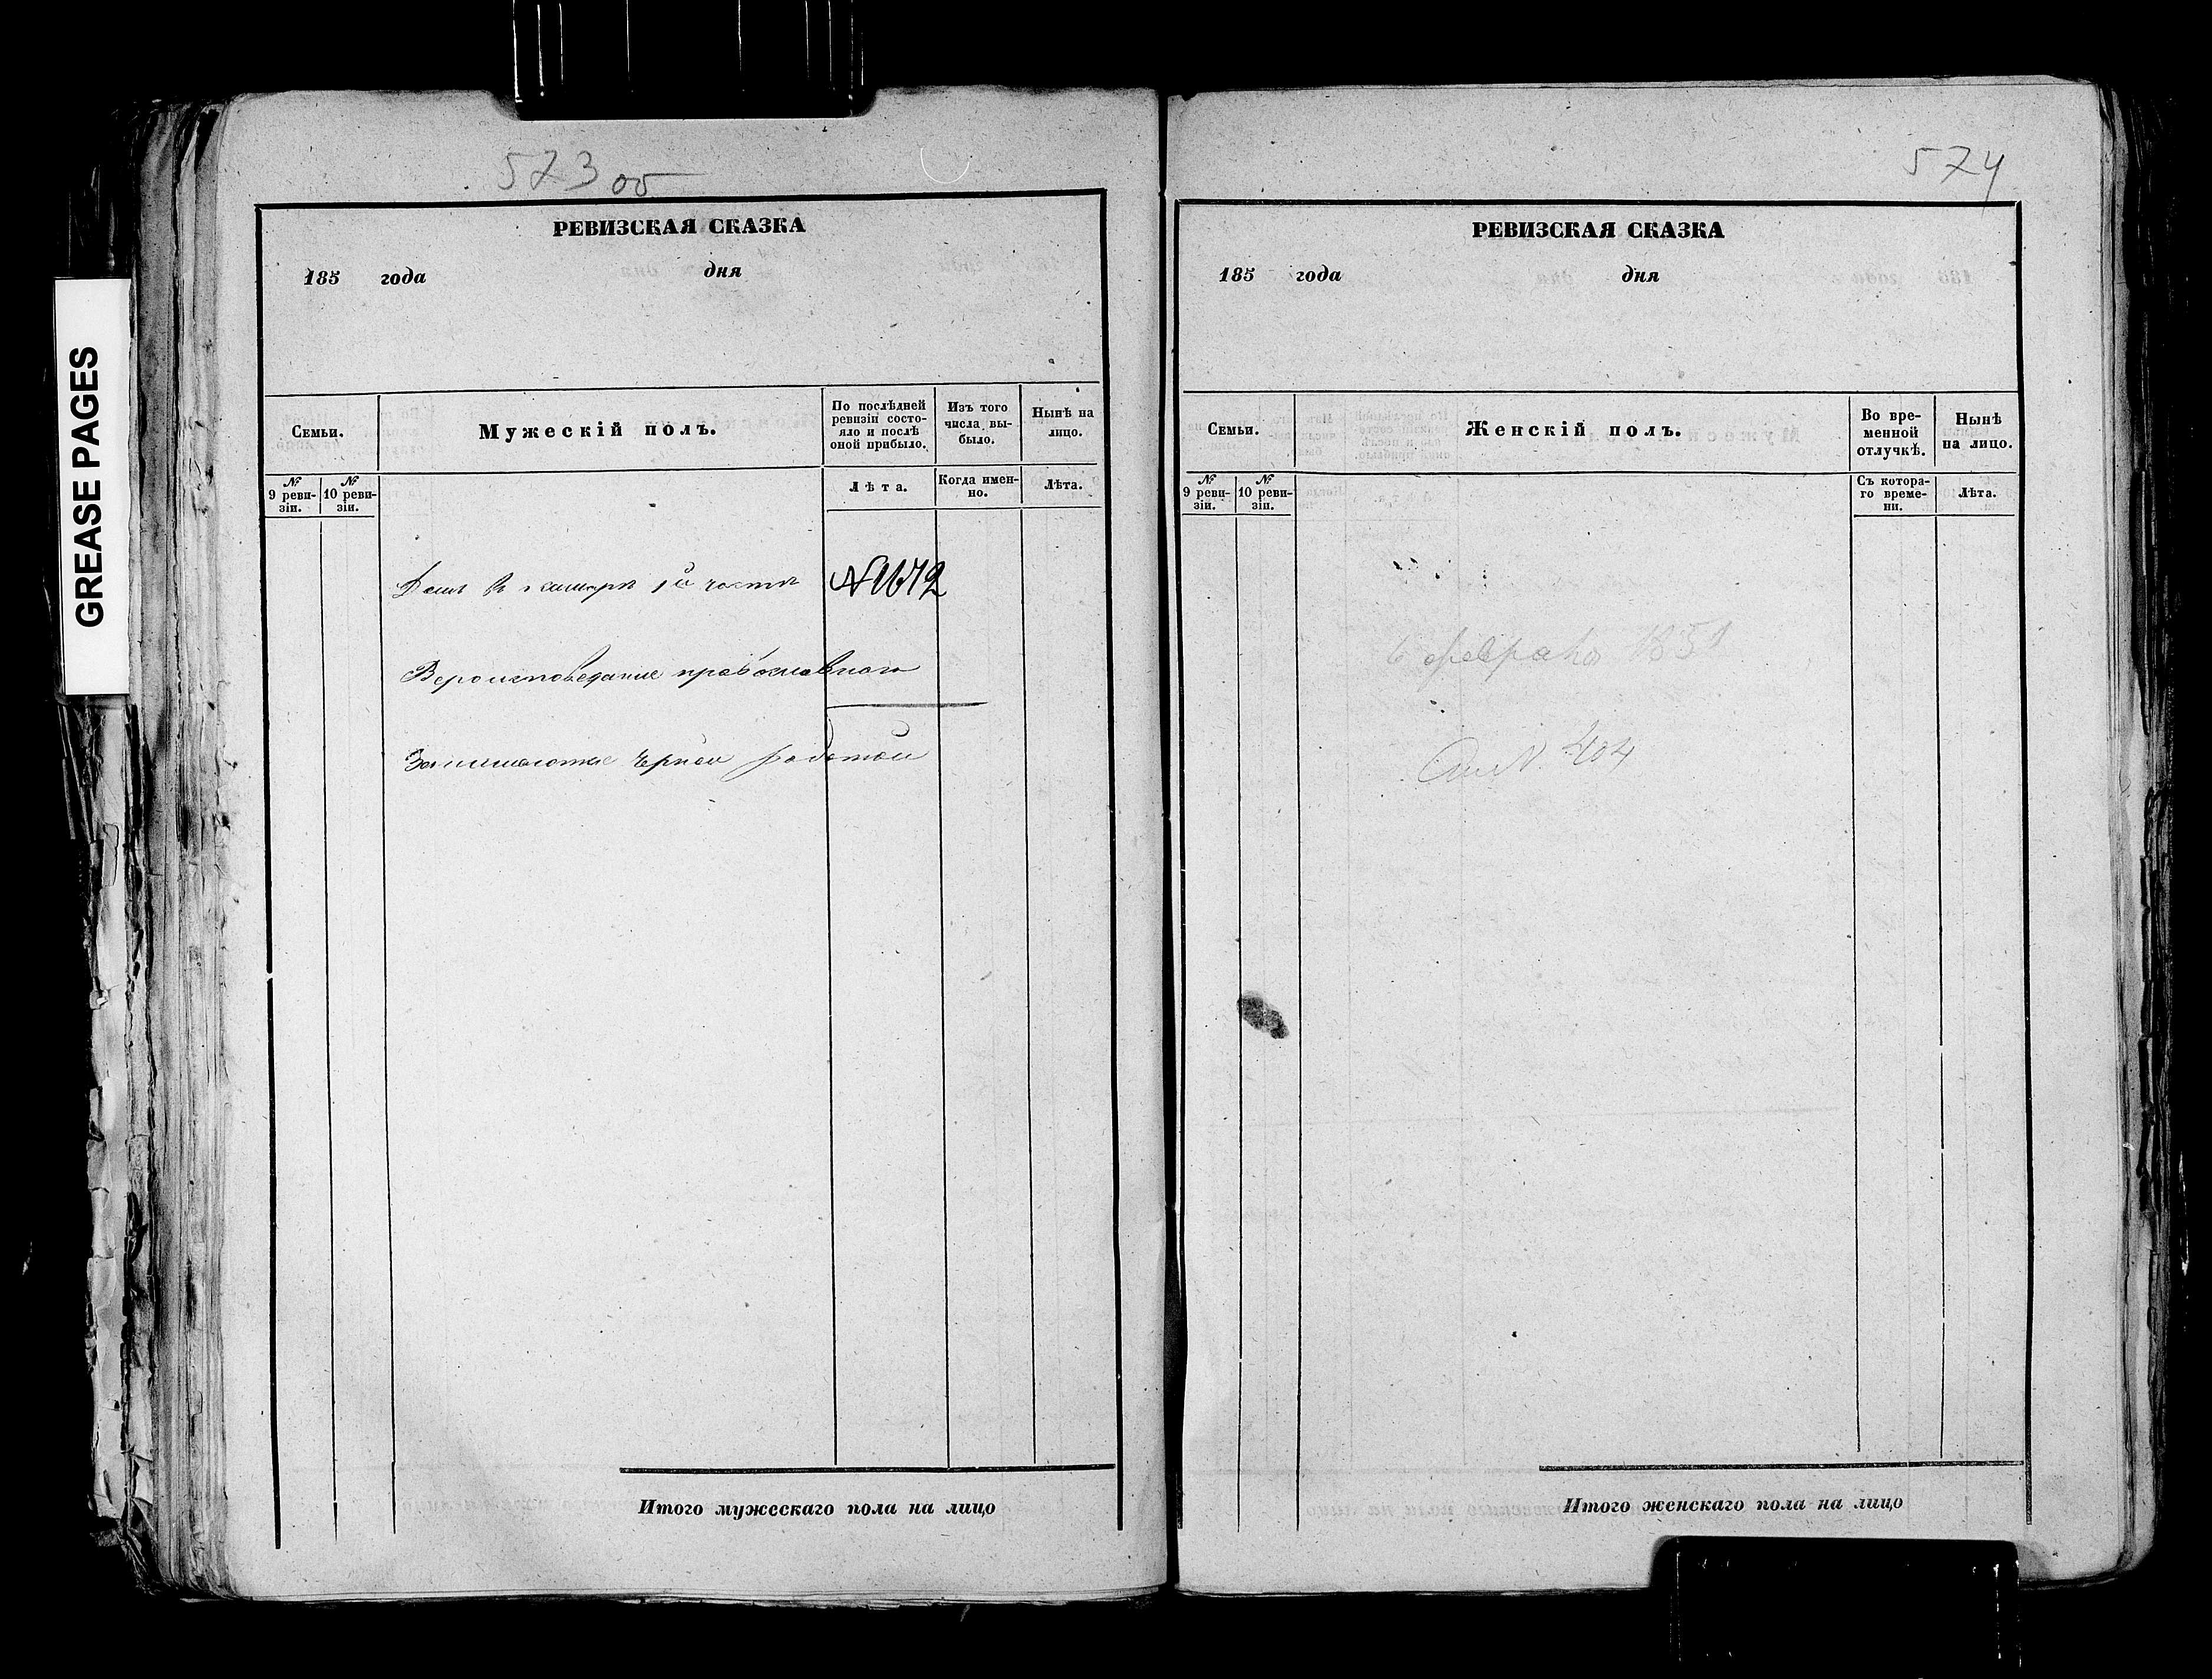 GREASE PAGES
573 об
РЕВИЗСКАЯ СКАЗКА
185 года дня
Семьи.
Мужескій полъ.
По послѣдней ревизіи состояло и послѣ оной прибыло.
Изъ того числа выбыло.
Нынѣ на лицо.
№ 9 ревизіи.
№ 10 ревизіи.
Лѣта.
Когда именно.
Лѣта.
1й части
Вероисповедание православного
Занимается черной работой
Итого мужескаго пола на лицо
574
РЕВИЗСКАЯ СКАЗКА
185 года дня
Семьи.
Женскій полъ.
Во временной отлучкѣ.
Нынѣ на лицо.
№ 9 ревизіи.
№ 10 ревизіи.
Съ котораго времени.
Лѣта.
6 февраля 1851
404
Итого женскаго пола на лицо